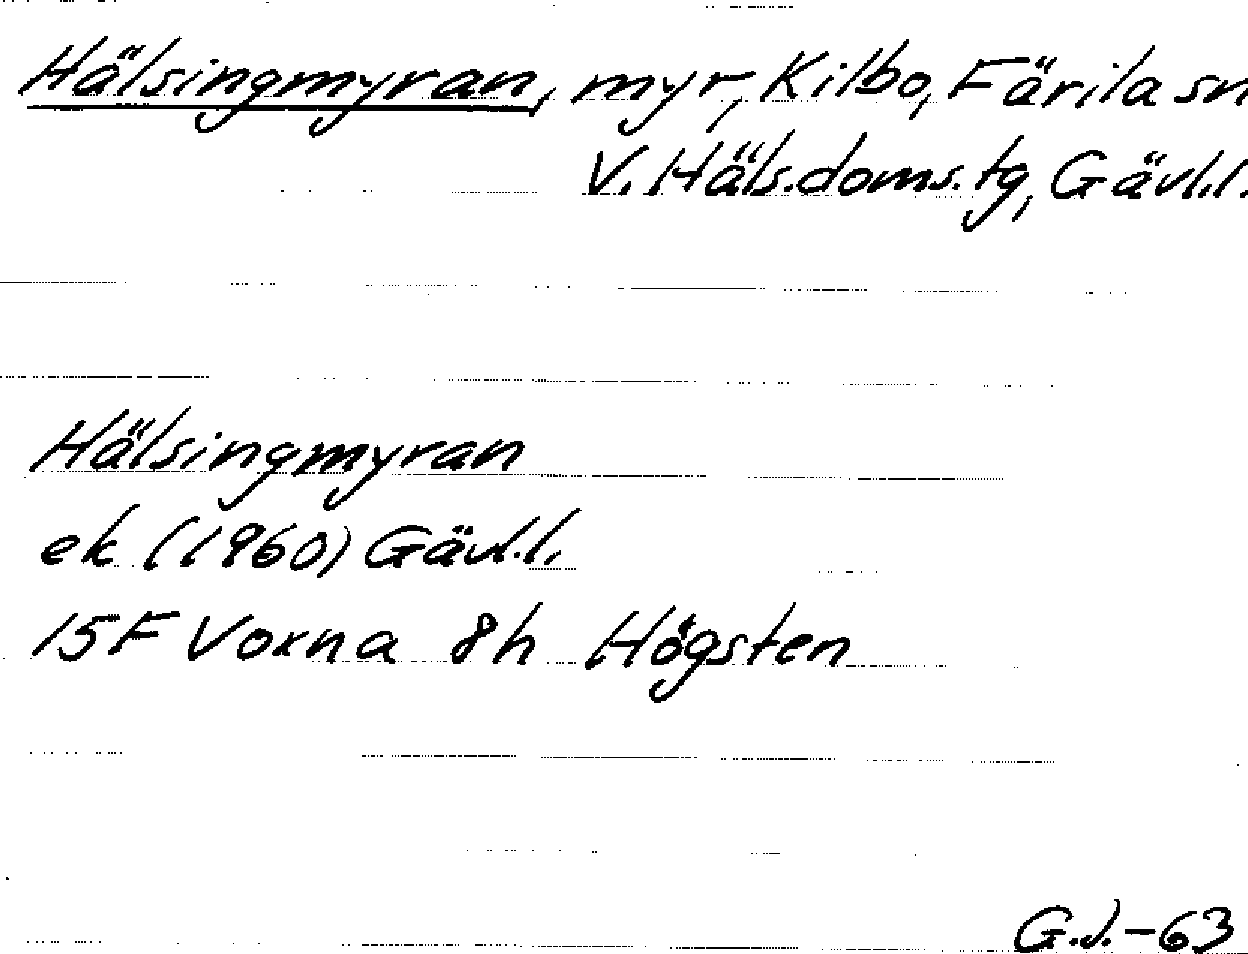 Hälsingmyran, myr, Kilbo, Färila sn
V. Häls.doms.tg, Gävl.l.
Hälsingmyran
ek (1960) Gävl.l.
15F Voxna 8h Högsten
G.J.-63